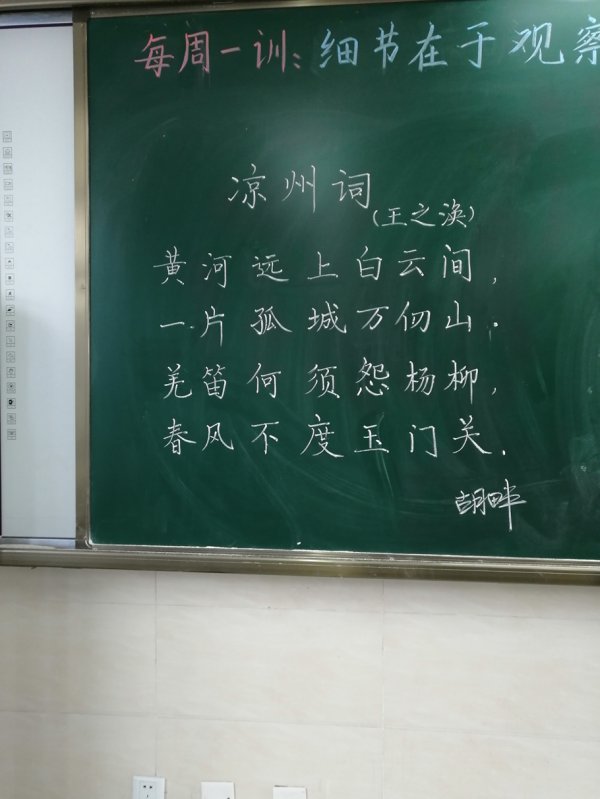 每周一训：细节在于观察
凉州词
（王之涣）
黄河远上白云间，
一片孤城万仞山．
羌笛何须怨杨柳，
春风不度玉门关．
胡畔